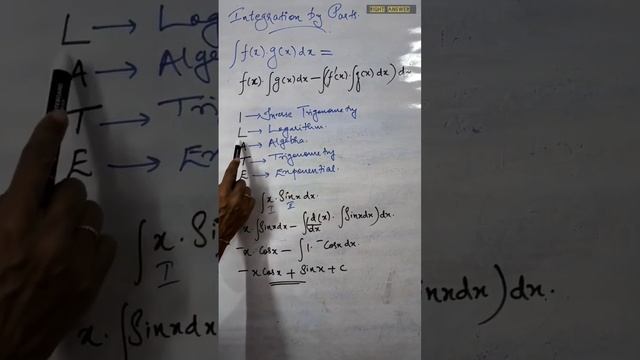 Integration by Parts.
RIGHT ANSWER
∫f(x).g(x)dx =
f(x).∫g(x)dx − ∫(f'(x).∫g(x)dx)dx
I → Inverse Trigonometry
L → Logarithm.
A → Algebra.
T → Trigonometry
E → Exponential.
∫x.Sinx dx.
I II
x.∫Sinxdx − ∫(d(x)/dx.∫Sinxdx)dx.
−x.Cosx − ∫1.−Cosxdx.
−x Cosx + Sinx + C
L →
A → Alge
T → Tri
E →
∫x.Si
I
x.∫Sinxdx
nxdx)dx.